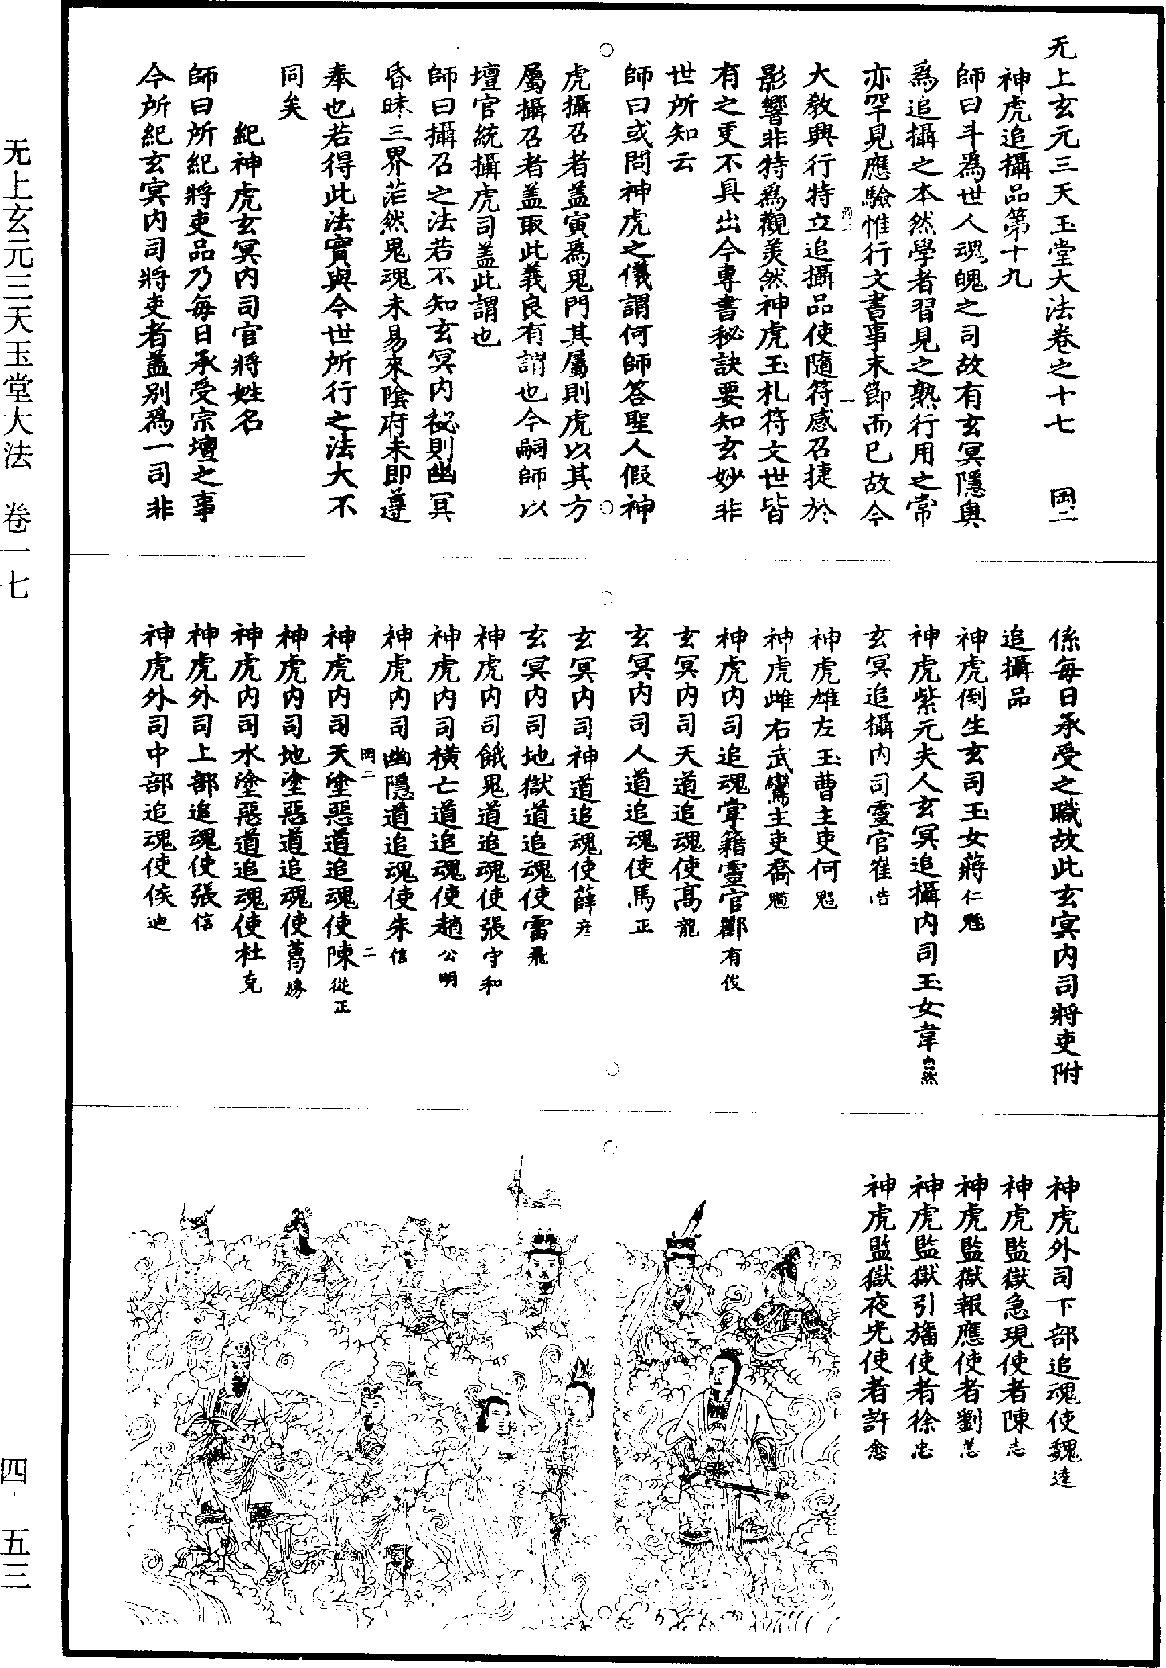 无上玄元三天玉堂大法卷之十七　岡二
神虎追攝品第十九
師曰斗為世人魂魄之司故有玄冥隱奧
為追攝之本然學者習見之熟行用之常
亦罕見應驗惟行文書事末節而已故今
大教興行特立追攝品使隨符感召捷於
影響非特為觀美然神虎玉札符文世皆
有之更不具出今專書秘訣要知玄妙非
世所知云
師曰或問神虎之儀謂何師答聖人假神
虎攝召者蓋寅為鬼門其屬則虎以其方
屬攝召者蓋取此義良有謂也今嗣師以
壇官統攝虎司蓋此謂也
師曰攝召之法若不知玄冥內秘則幽冥
昏昧三界茫然鬼魂未易來陰府未即遵
奉也若得此法實與今世所行之法大不
同矣
紀神虎玄冥內司官將姓名
師曰所紀將吏品乃每日承受宗壇之事
今所紀玄冥內司將吏者蓋別為一司非
係每日承受之職故此玄冥內司將吏附
追攝品
神虎倒生玄司玉女蔣仁
神虎紫元夫人玄冥追攝內司玉女韋自然
玄冥追攝內司靈官崔浩
神虎雄左玉曹主吏何
神虎雌右武鸞主吏喬
神虎內司追魂掌籍靈官鄧有俊
玄冥內司天道追魂使高龍
玄冥內司人道追魂使馬正
玄冥內司神道追魂使薛彥
玄冥內司地獄道追魂使雷飛
神虎內司餓鬼道追魂使張守和
神虎內司橫亡道追魂使趙公明
神虎內司幽隱道追魂使朱信
神虎內司天塗惡道追魂使陳從正
岡二　二
神虎內司地塗惡道追魂使葛勝
神虎內司水塗惡道追魂使杜克
神虎外司上部追魂使張信
神虎外司中部追魂使侯迪
神虎外司下部追魂使魏達
神虎監獄急現使者陳志
神虎監獄報應使者劉
神虎監獄引旛使者徐忠
神虎監獄夜光使者許
无上玄元三天玉堂大法　卷一七
四·五三